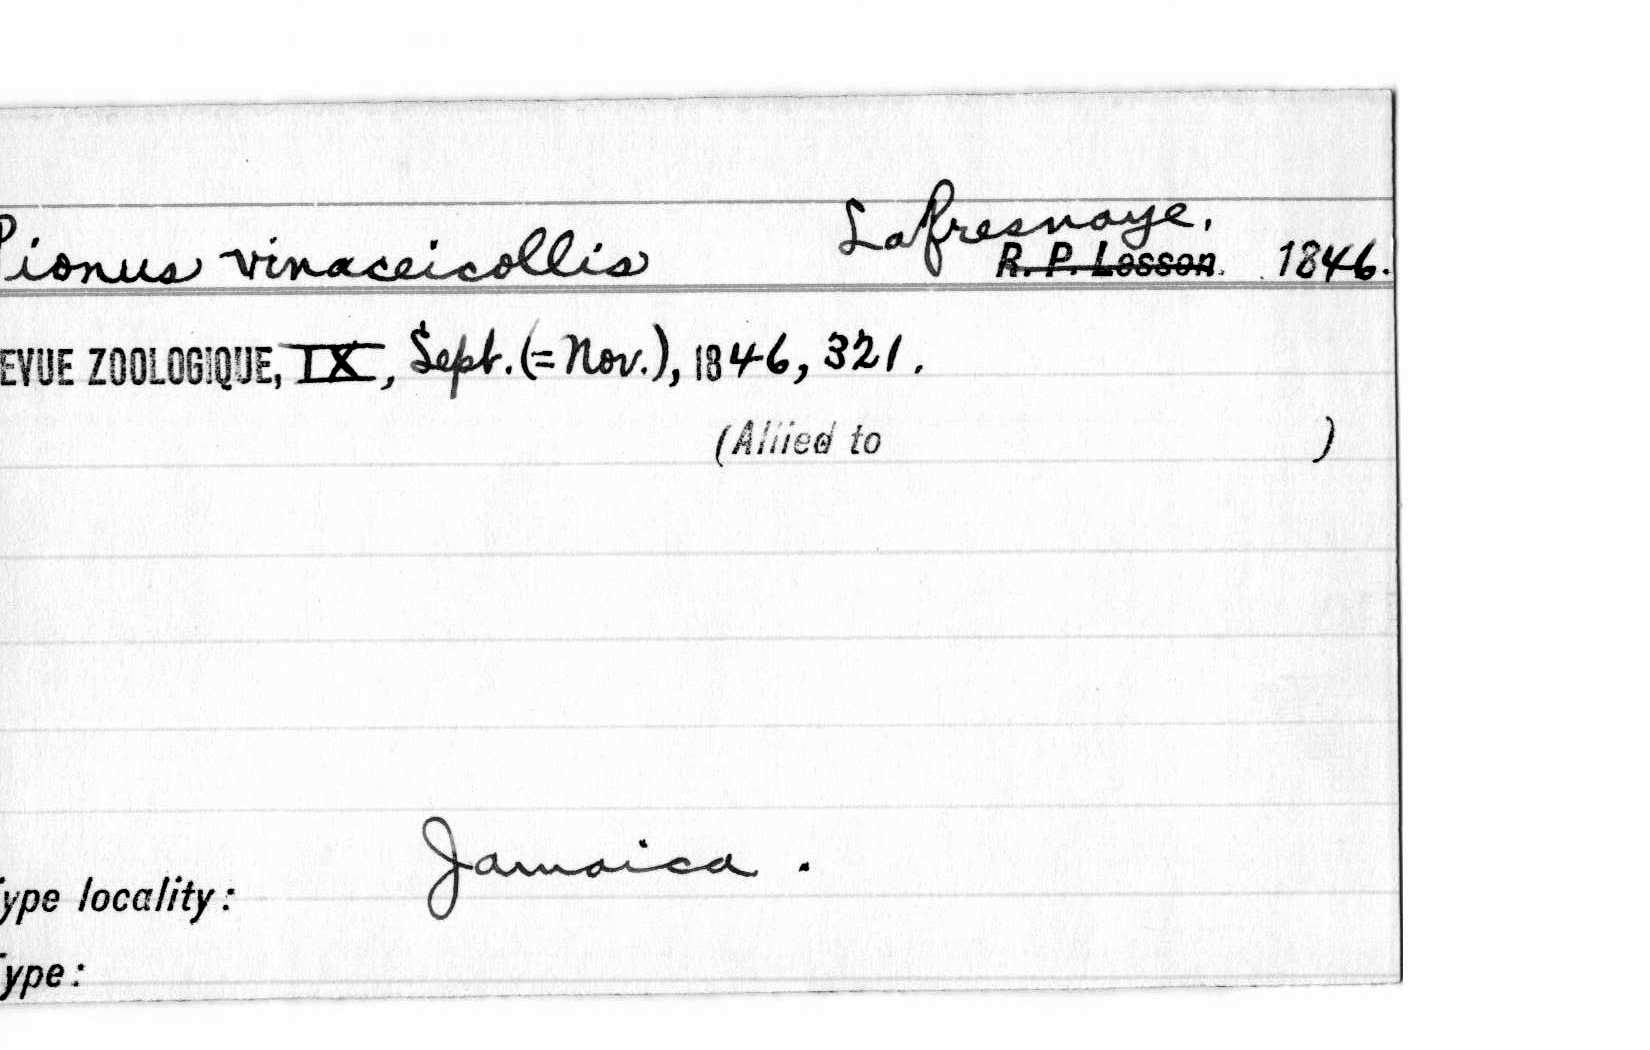 Pionus vinaceicollis Lafresnaye.
R. P. Lesson. 1846.
EVUE ZOOLOGIQUE, IX, Sept. (=Nov.), 1846, 321.
(Allied to )
Jamaica.
ype locality:
ype: